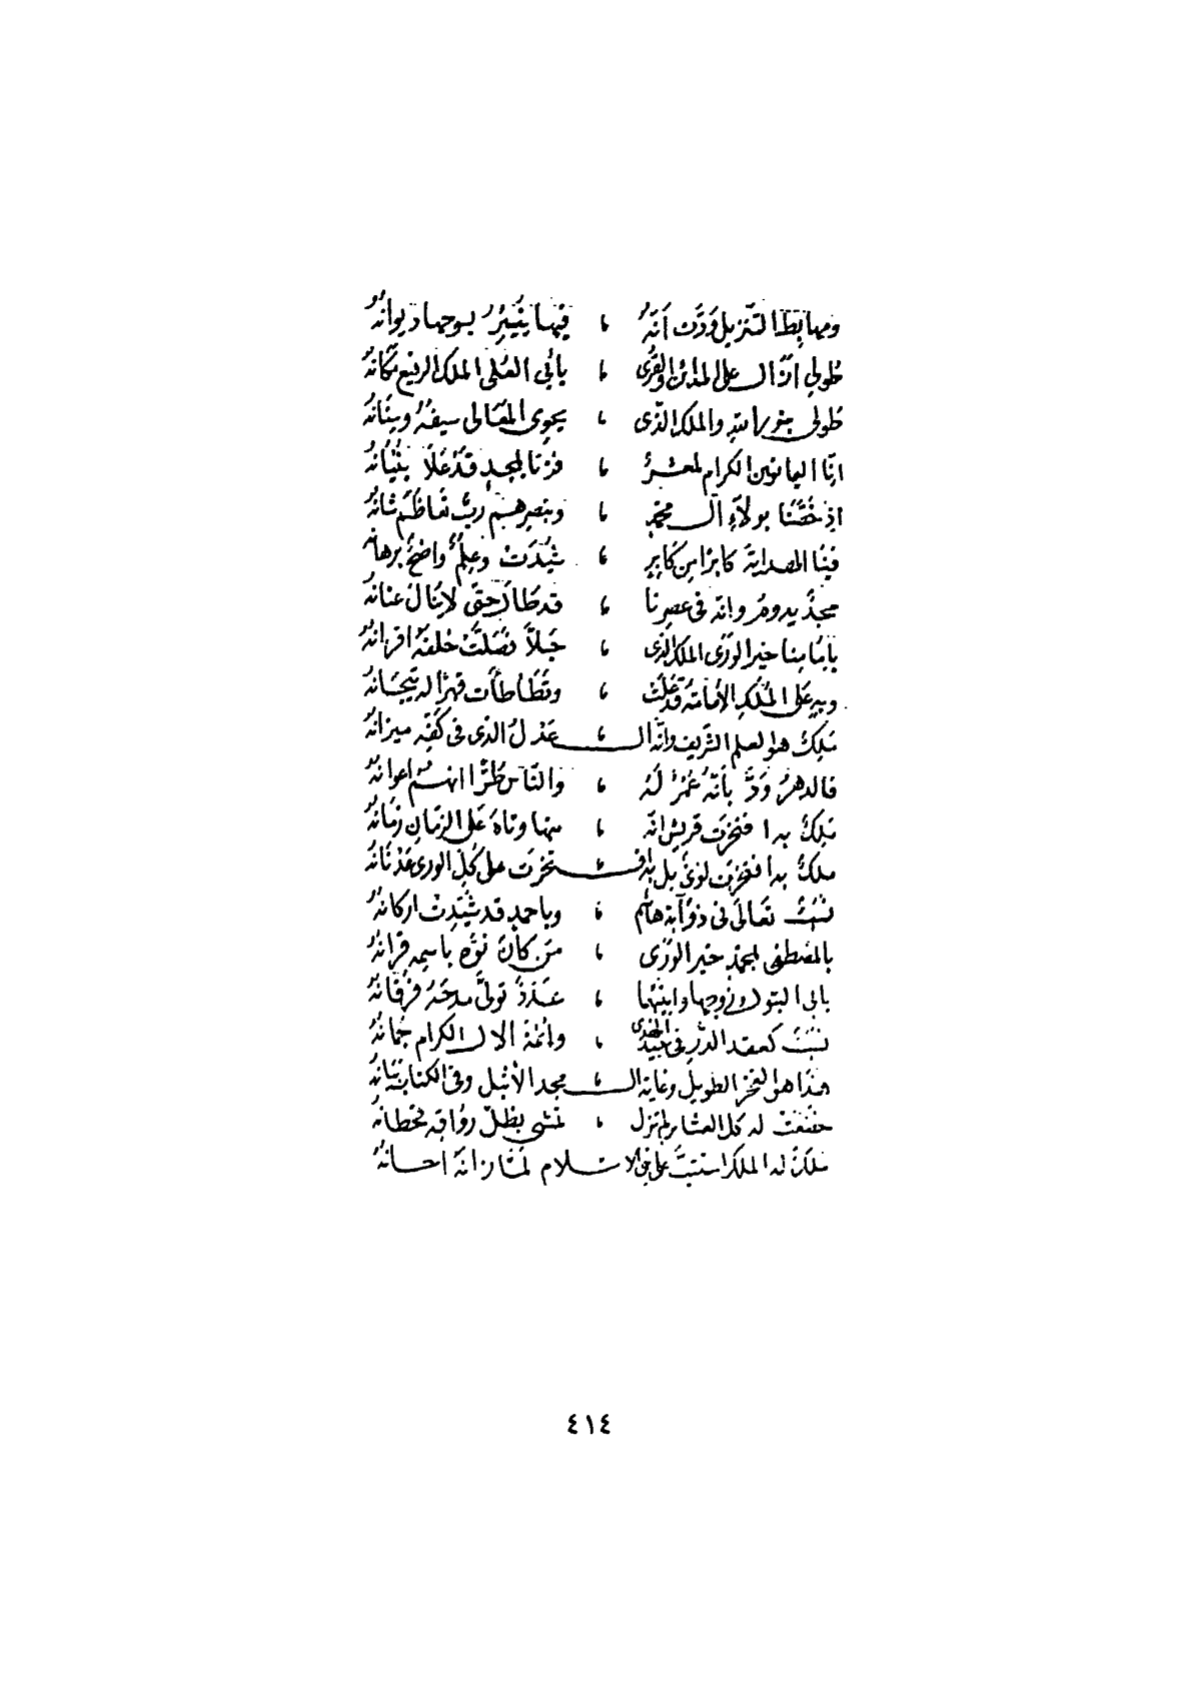 ومهابط التنزيل ودّت أنّهُ ، فيها ينيرُ بوجهها ديوانهُ
طولي ازال على المدائن والقرى ، بأبي العُلى الملك الرفيع مكانهُ
طولي بنور الله والملك الذى ، يحوى المعالى سيفهُ وبنانهُ
انّا اليمانون الكرام لمعشرٌ ، فزنا بمجدٍ قد عَلا بنيانهُ
اذ خصّنا بولاءِ آل محمّدٍ ، وبنصرهم ربٌّ تعاظم شانهُ
فينا الهداية كابرًا من كابرٍ ، شيّدت وعلمٌ واضح برهانه
مجدٌ يدوم وانه فى عصرنا ، قد طار حتى لا ينال عنانهُ
بامامنا خير الورى الملك الذى ، جَلّا فصلّت خلفهُ اقرانهُ
وبه على المُلك الأمامة قد علت ، وتطأطأت قهرًا له تيجانهُ
ملكٌ هو العلم الشريف وانّه الـ ، ـعدلُ الذى فى كفّه ميزانهُ
فالدهر ودَّ بأنّهُ عمرٌ لهُ ، والنّاس طُرًّا انهم اعوانهُ
ملكٌ به افتخرت قريش انّه ، منها وتاهَ على الزمانِ زمانهُ
ملكٌ به افتخرت لؤىّ بل به افـ ، ـتخرت على كلّ الورى عدنانهُ
نسبٌ تعالى فى ذؤآبة هاشم ، وباحمدٍ قد شيّدت اركانهُ
بالمصطفى بمحمدٍ خير الورى ، من كان نوّه باسمه قرآنهُ
بابى البتول وزوجها وابنيهما ، عددٌ تولّى مدحَهُ فرقانهُ
نسبٌ كعقد الدّر فى جيد الهدى ، وائمّة الآل الكرام جُمانهُ
هذا هو الفخر الطويل وغاية الـ ، ـمجد الأثيل وفى الكتاب بيانهُ
خضعت له كل العشائر لم تزل ، تمشى بظلّ رواقه قحطانهُ
ملكٌ له الملك استتبَّ على بنى الاسلام لمّا زانهَ احسانهُ
٤١٤